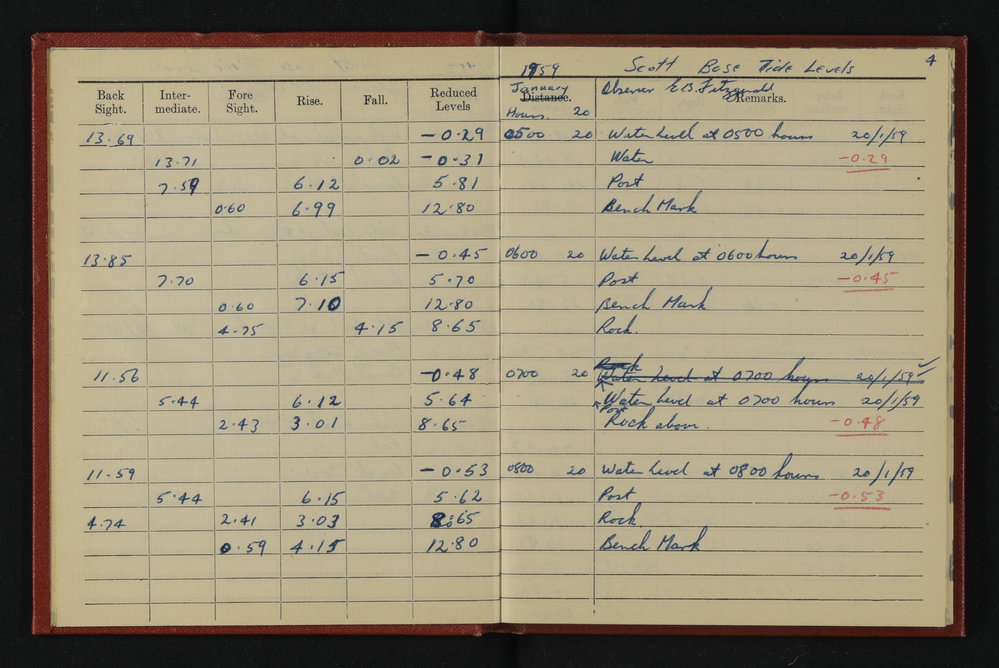 1959 Scott Base Tide Levels 4
Back Sight. Inter-mediate. Fore Sight. Rise. Fall. Reduced Levels January Distance. Hours. 20 Observer E.B. Fitzgerald Remarks.
13.69 -0.29 0500 20 Water Level at 0500 hours 20/1/59
13.71 0.02 -0.31 Water -0.29
7.59 6.12 5.81 Post
0.60 6.99 12.80 Bench Mark
13.85 -0.45 0600 20 Water Level at 0600 hours 20/1/59
7.70 6.15 5.70 Post -0.45
0.60 7.10 12.80 Bench Mark
4.75 4.15 8.65 Rock.
Rock
11.56 -0.48 0700 20 Water Level at 0700 hours 20/1/59 ✓
5.44 6.12 5.64 Water Level at 0700 hours 20/1/59
Post
2.43 3.01 8.65 Rock above. -0.48
11.59 -0.53 0800 20 Water Level at 0800 hours 20/1/59
5.44 6.15 5.62 Post -0.53
4.74 2.41 3.03 8.65 Rock
0.59 4.15 12.80 Bench Mark